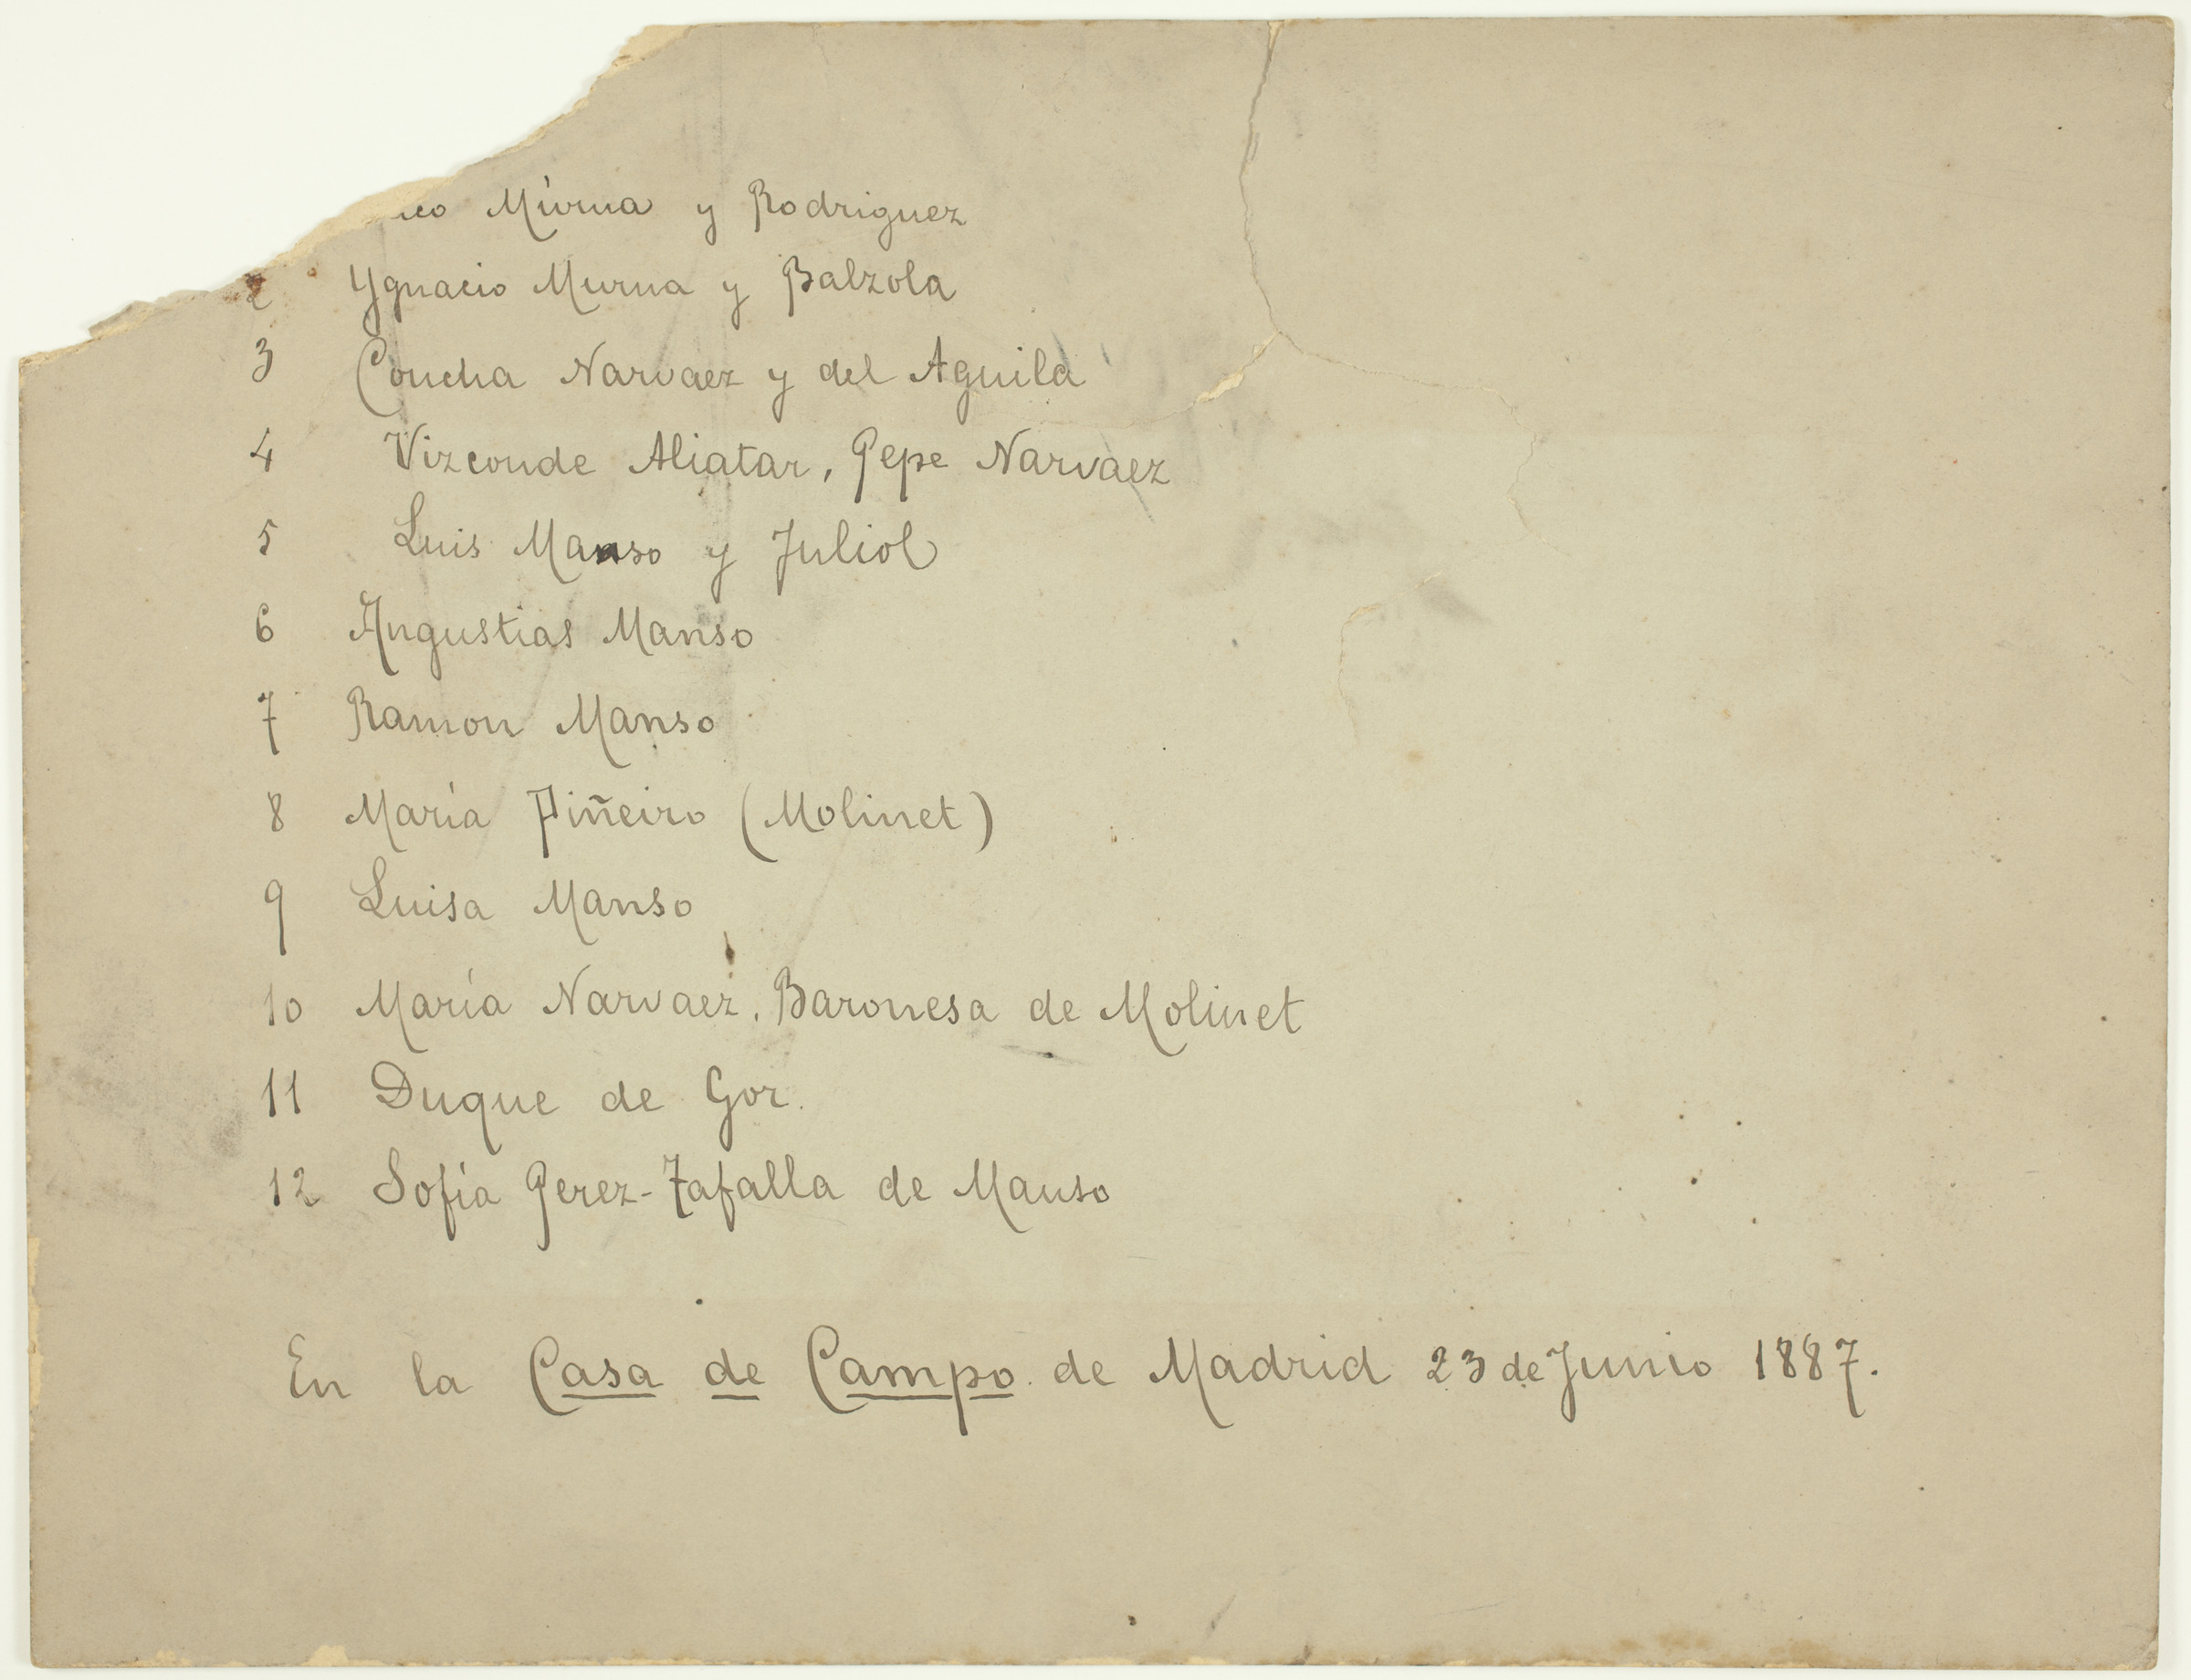 Múrua y Rodriguez
2 Ygnacio Murua y Balzola
3 Concha Narvaez y del Aguila
4 Vizconde Aliatar, Pepe Narvaez
5 Luis Manso y Juliol
6 Angustias Manso
7 Ramon Manso
8 María Piñeiro (Molinet)
9 Luisa Manso
10 María Narvaez, Baronesa de Molinet
11 Duque de Gor.
12 Sofía Perez-Tafalla de Manso
En la Casa de Campo de Madrid 23 de Junio 1887.